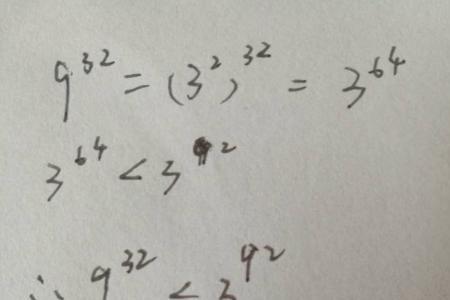 9³² = (3²)³² = 3⁶⁴
3⁶⁴ < 3⁹²
∴ 9³² < 3⁹²